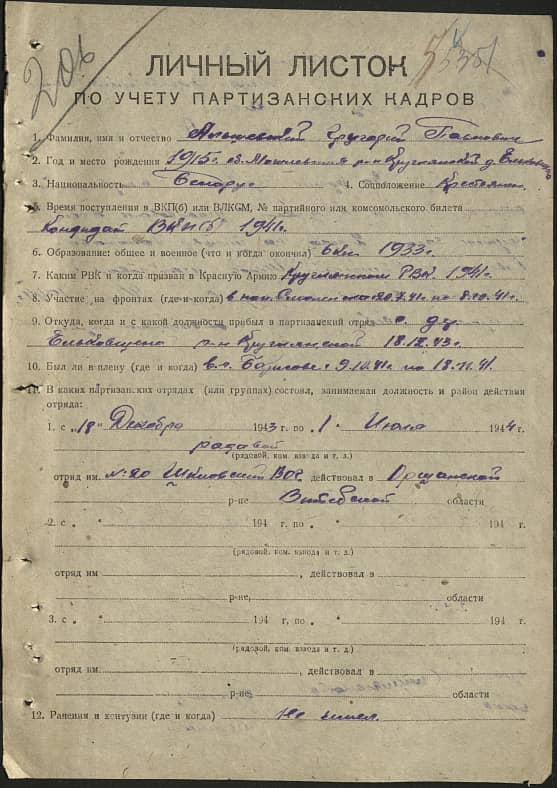 206
ЛИЧНЫЙ ЛИСТОК
ПО УЧЕТУ ПАРТИЗАНСКИХ КАДРОВ
1. Фамилия, имя и отчество Григорий Павлович
2. Год и место рождения 1915 г. р-н Круглянский д.
3. Национальность Беларус 4. Соцположение Крестьянин
5. Время поступления в ВКП(б) или ВЛКСМ, № партийного или комсомольского билета
Кандидат ВКП(б) 1941 г.
6. Образование: общее и военное (что и когда окончил) 6 кл 1933 г.
7. Каким РВК и когда призван в Красную Армию Круглянским РВК 1941 г.
8. Участие на фронтах (где и когда) в нап. Смоленска 20.7.41 по 8.10.41 г.
9. Откуда, когда и с какой должности прибыл в партизанский отряд с д.
Ельковщина р-н Круглянский 18.12.43 г.
10. Был ли в плену (где и когда) в г. Борисове с 9.10.41 г. по 18.11.41.
11. В каких партизанских отрядах (или группах) состоял, занимаемая должность и район действия
отряда:
1. с „18" Декабря 1943 г. по „1 " Июля 1944 г.
рядовой
(рядовой, ком. взвода и т. д.)
отряд им. № 20 Шкловский ВОГ действовал в Оршанской
р-не Витебской области
2. с „ " 194 г. по „ " 194 г.
(рядовой, ком. взвода и т. д.)
отряд им , действовал в
р-не, области
3. с „ " 194 г. по „ " 194 г.
(рядовой, ком. взвода и т. д.)
отряд им. , действовал в
р-не области
12. Ранения и контузии (где и когда) Не имел.